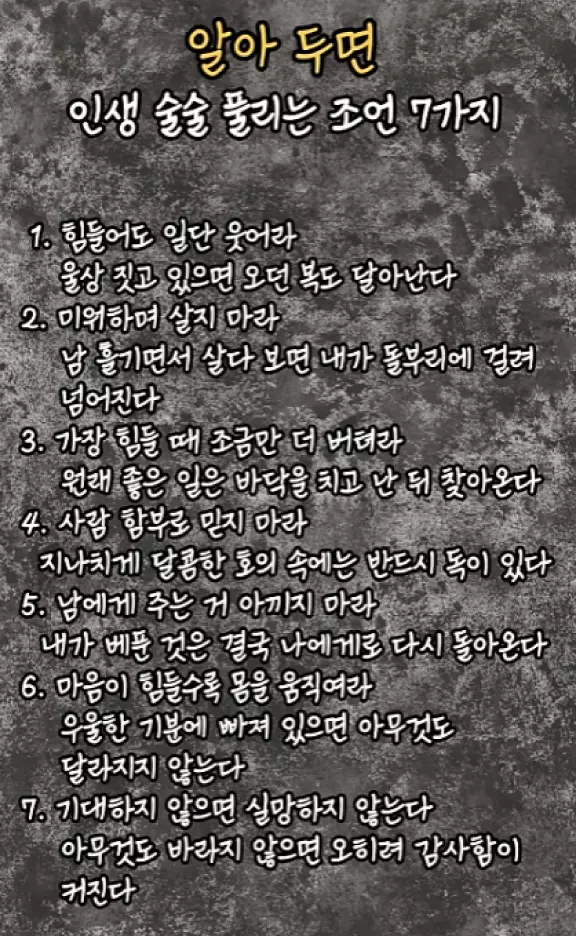 알아 두면
인생 술술 풀리는 조언 7가지
1. 힘들어도 일단 웃어라
울상 짓고 있으면 오던 복도 달아난다
2. 미워하며 살지 마라
남 흘기면서 살다 보면 내가 돌부리에 걸려
넘어진다
3. 가장 힘들 때 조금만 더 버텨라
원래 좋은 일은 바닥을 치고 난 뒤 찾아온다
4. 사람 함부로 믿지 마라
지나치게 달콤한 호의 속에는 반드시 독이 있다
5. 남에게 주는 거 아끼지 마라
내가 베푼 것은 결국 나에게로 다시 돌아온다
6. 마음이 힘들수록 몸을 움직여라
우울한 기분에 빠져 있으면 아무것도
달라지지 않는다
7. 기대하지 않으면 실망하지 않는다
아무것도 바라지 않으면 오히려 감사함이
커진다